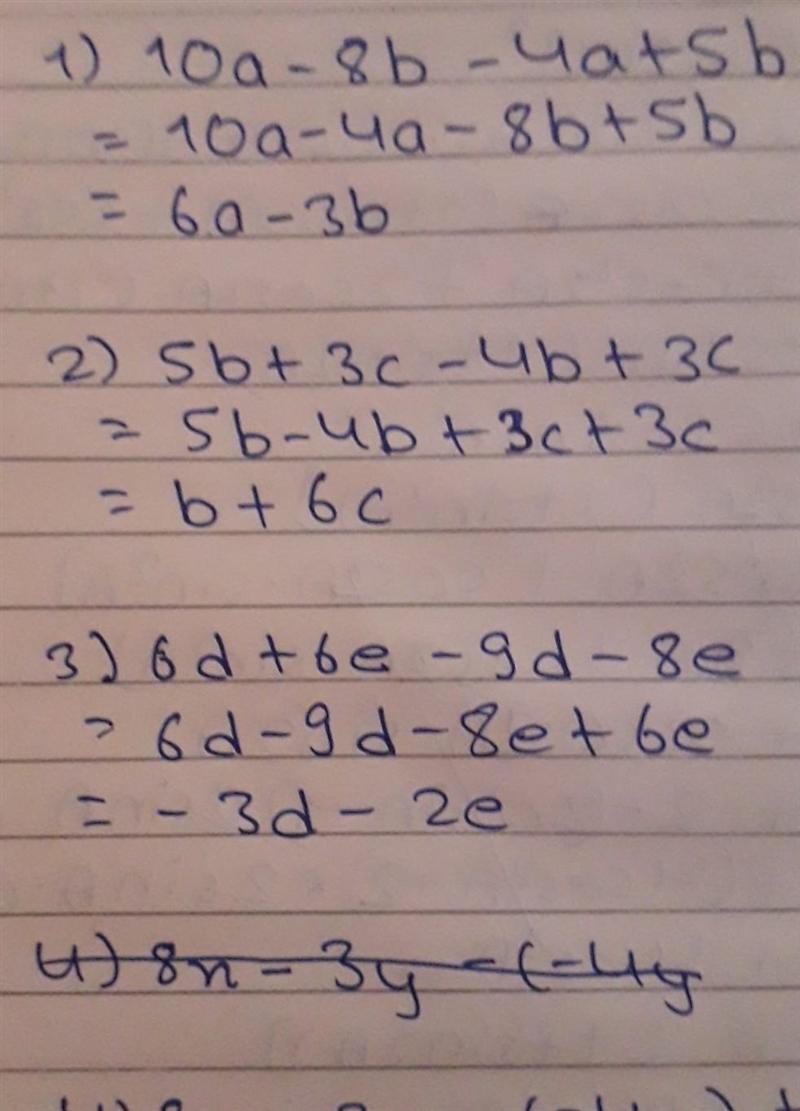 1) 10a - 8b - 4a + 5b
= 10a - 4a - 8b + 5b
= 6a - 3b
2) 5b + 3c - 4b + 3c
= 5b - 4b + 3c + 3c
= b + 6c
3) 6d + 6e - 9d - 8e
= 6d - 9d - 8e + 6e
= - 3d - 2e
4) 8x - 3y - (-4y